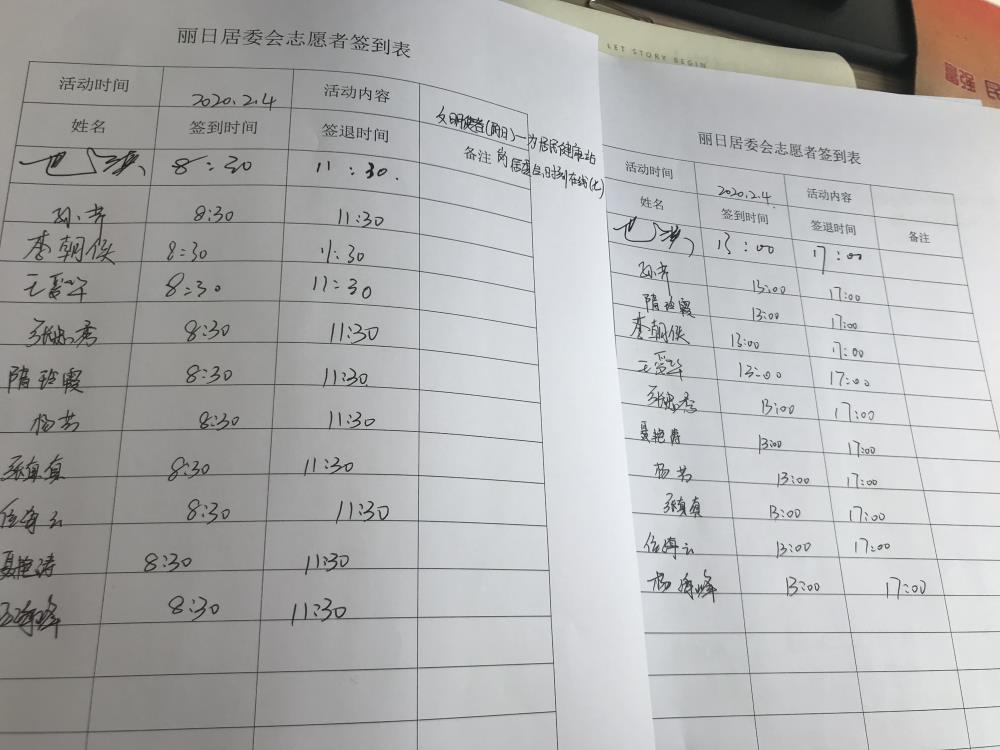 丽日居委会志愿者签到表
活动时间 2020.2.4 活动内容
姓名 签到时间 签退时间 备注
8:30 11:30.
孙芹 8:30 11:30
李朝侠 8:30 11:30
王爱华 8:30 11:30
张忠秀 8:30 11:30
隋玲霞 8:30 11:30
杨芳 8:30 11:30
张真真 8:30 11:30
任海云 8:30 11:30
聂艳涛 8:30 11:30
8:30 11:30
LET STORY BEGIN
富强 民
丽日居委会志愿者签到表
活动时间 2020.2.4 活动内容
姓名 签到时间 签退时间 备注
13:00 17:00
孙芹 13:00 17:00
隋玲霞 13:00 17:00
李朝侠 13:00 17:00
王爱华 13:00 17:00
张忠秀 13:00 17:00
聂艳涛 13:00 17:00
杨芳 13:00 17:00
张真真 13:00 17:00
任海云 13:00 17:00
杨海峰 13:00 17:00